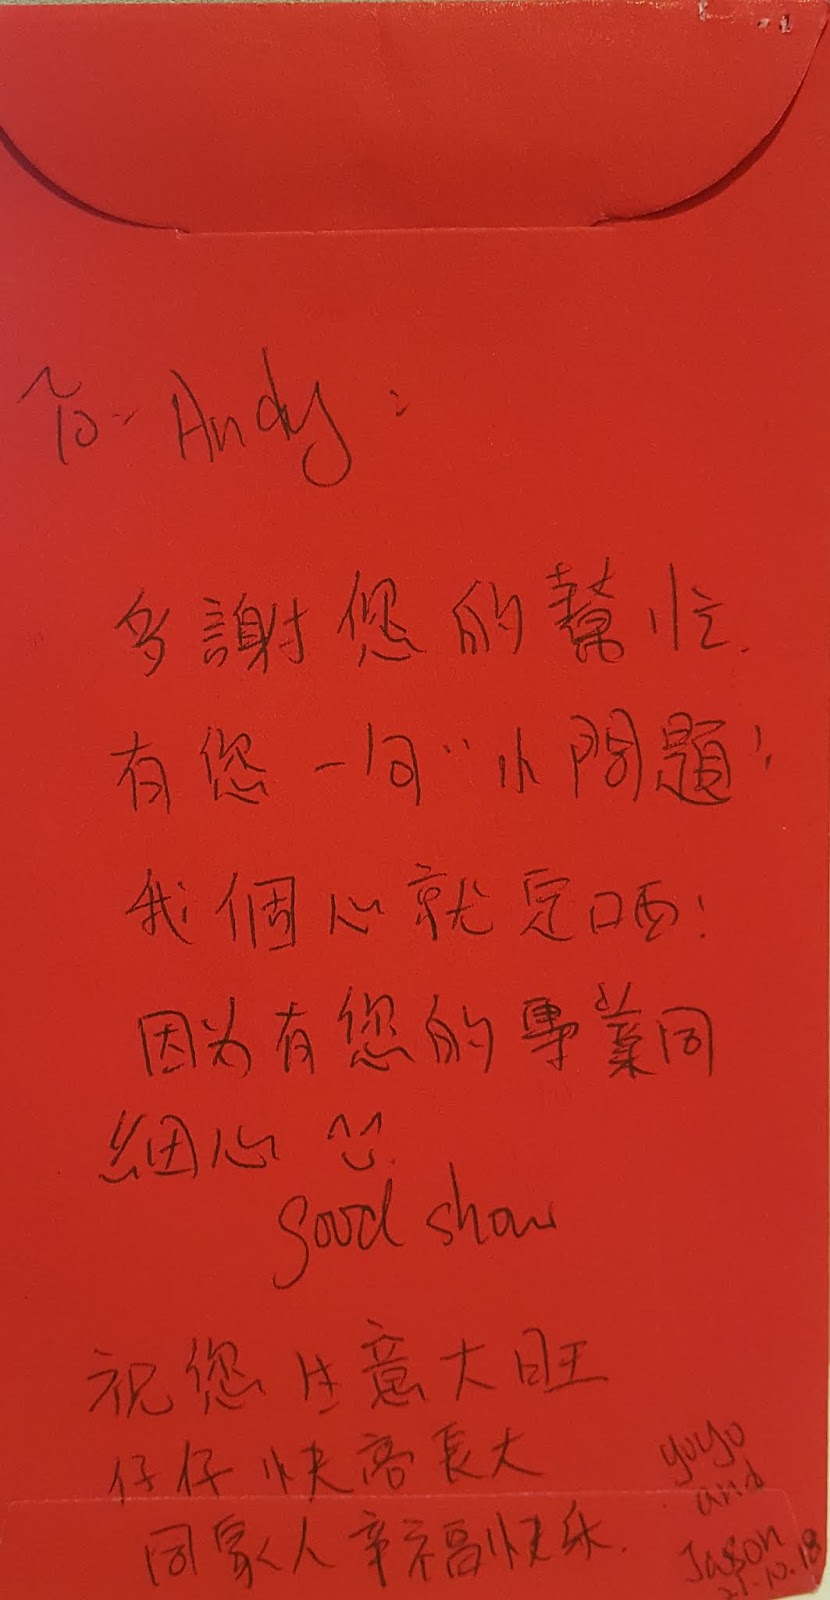 To Andy:
多謝您的幫忙.
有您一句"小問題"
我個心就定晒!
因为有您的專業同
細心 ^^
good show
祝您生意大旺
仔仔快高長大
同家人幸福快乐.
yoyo
and
Jason
21.10.18